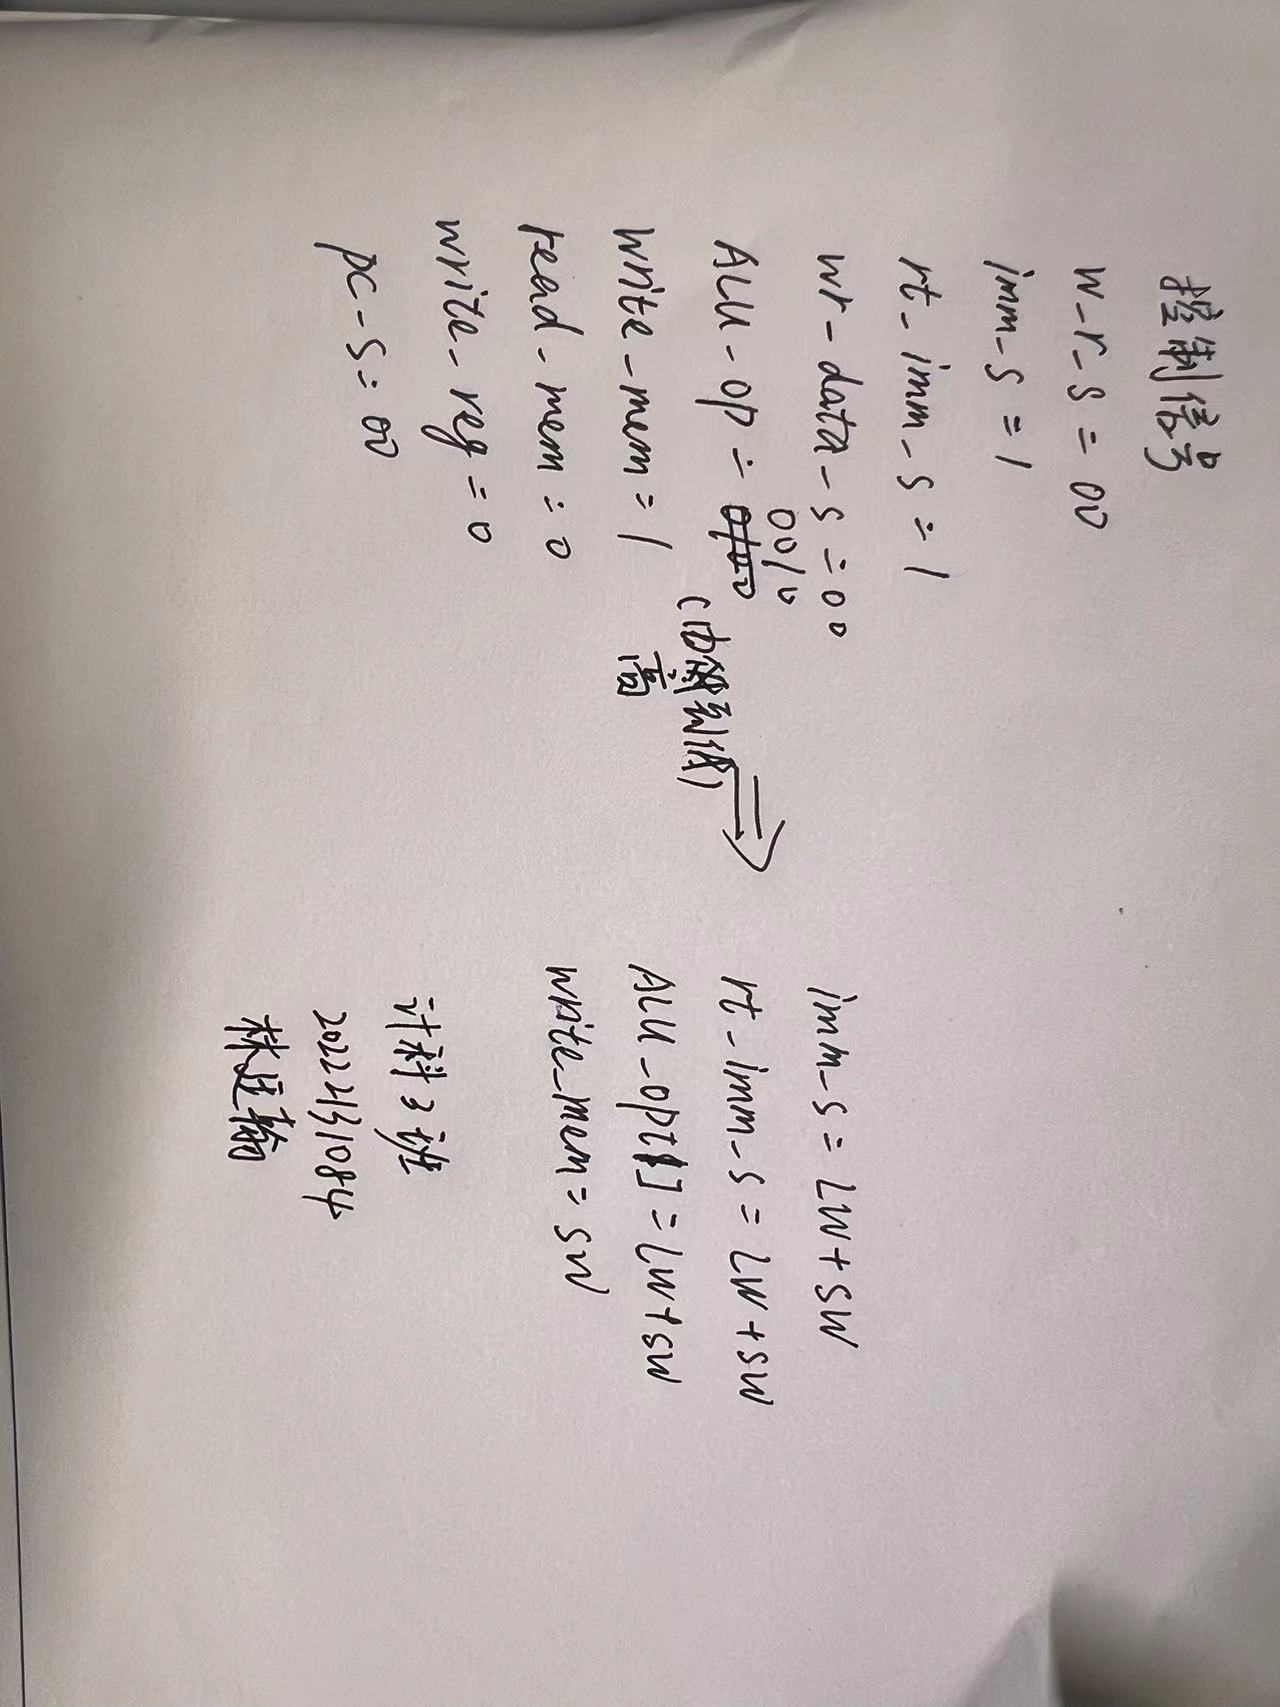 控制信号
w_r_s = 00
imm_s = 1
rt_imm_s = 1
wr_data_s = 00
0010
ALU_op =
(由到低)
高
write_mem = 1
read_mem = 0
write_reg = 0
pc_s = 00
imm_s = LW + SW
rt_imm_s = LW + SW
ALU_op[1] = LW + SW
write_mem = SW
计科3班
20222131084
林廷翰